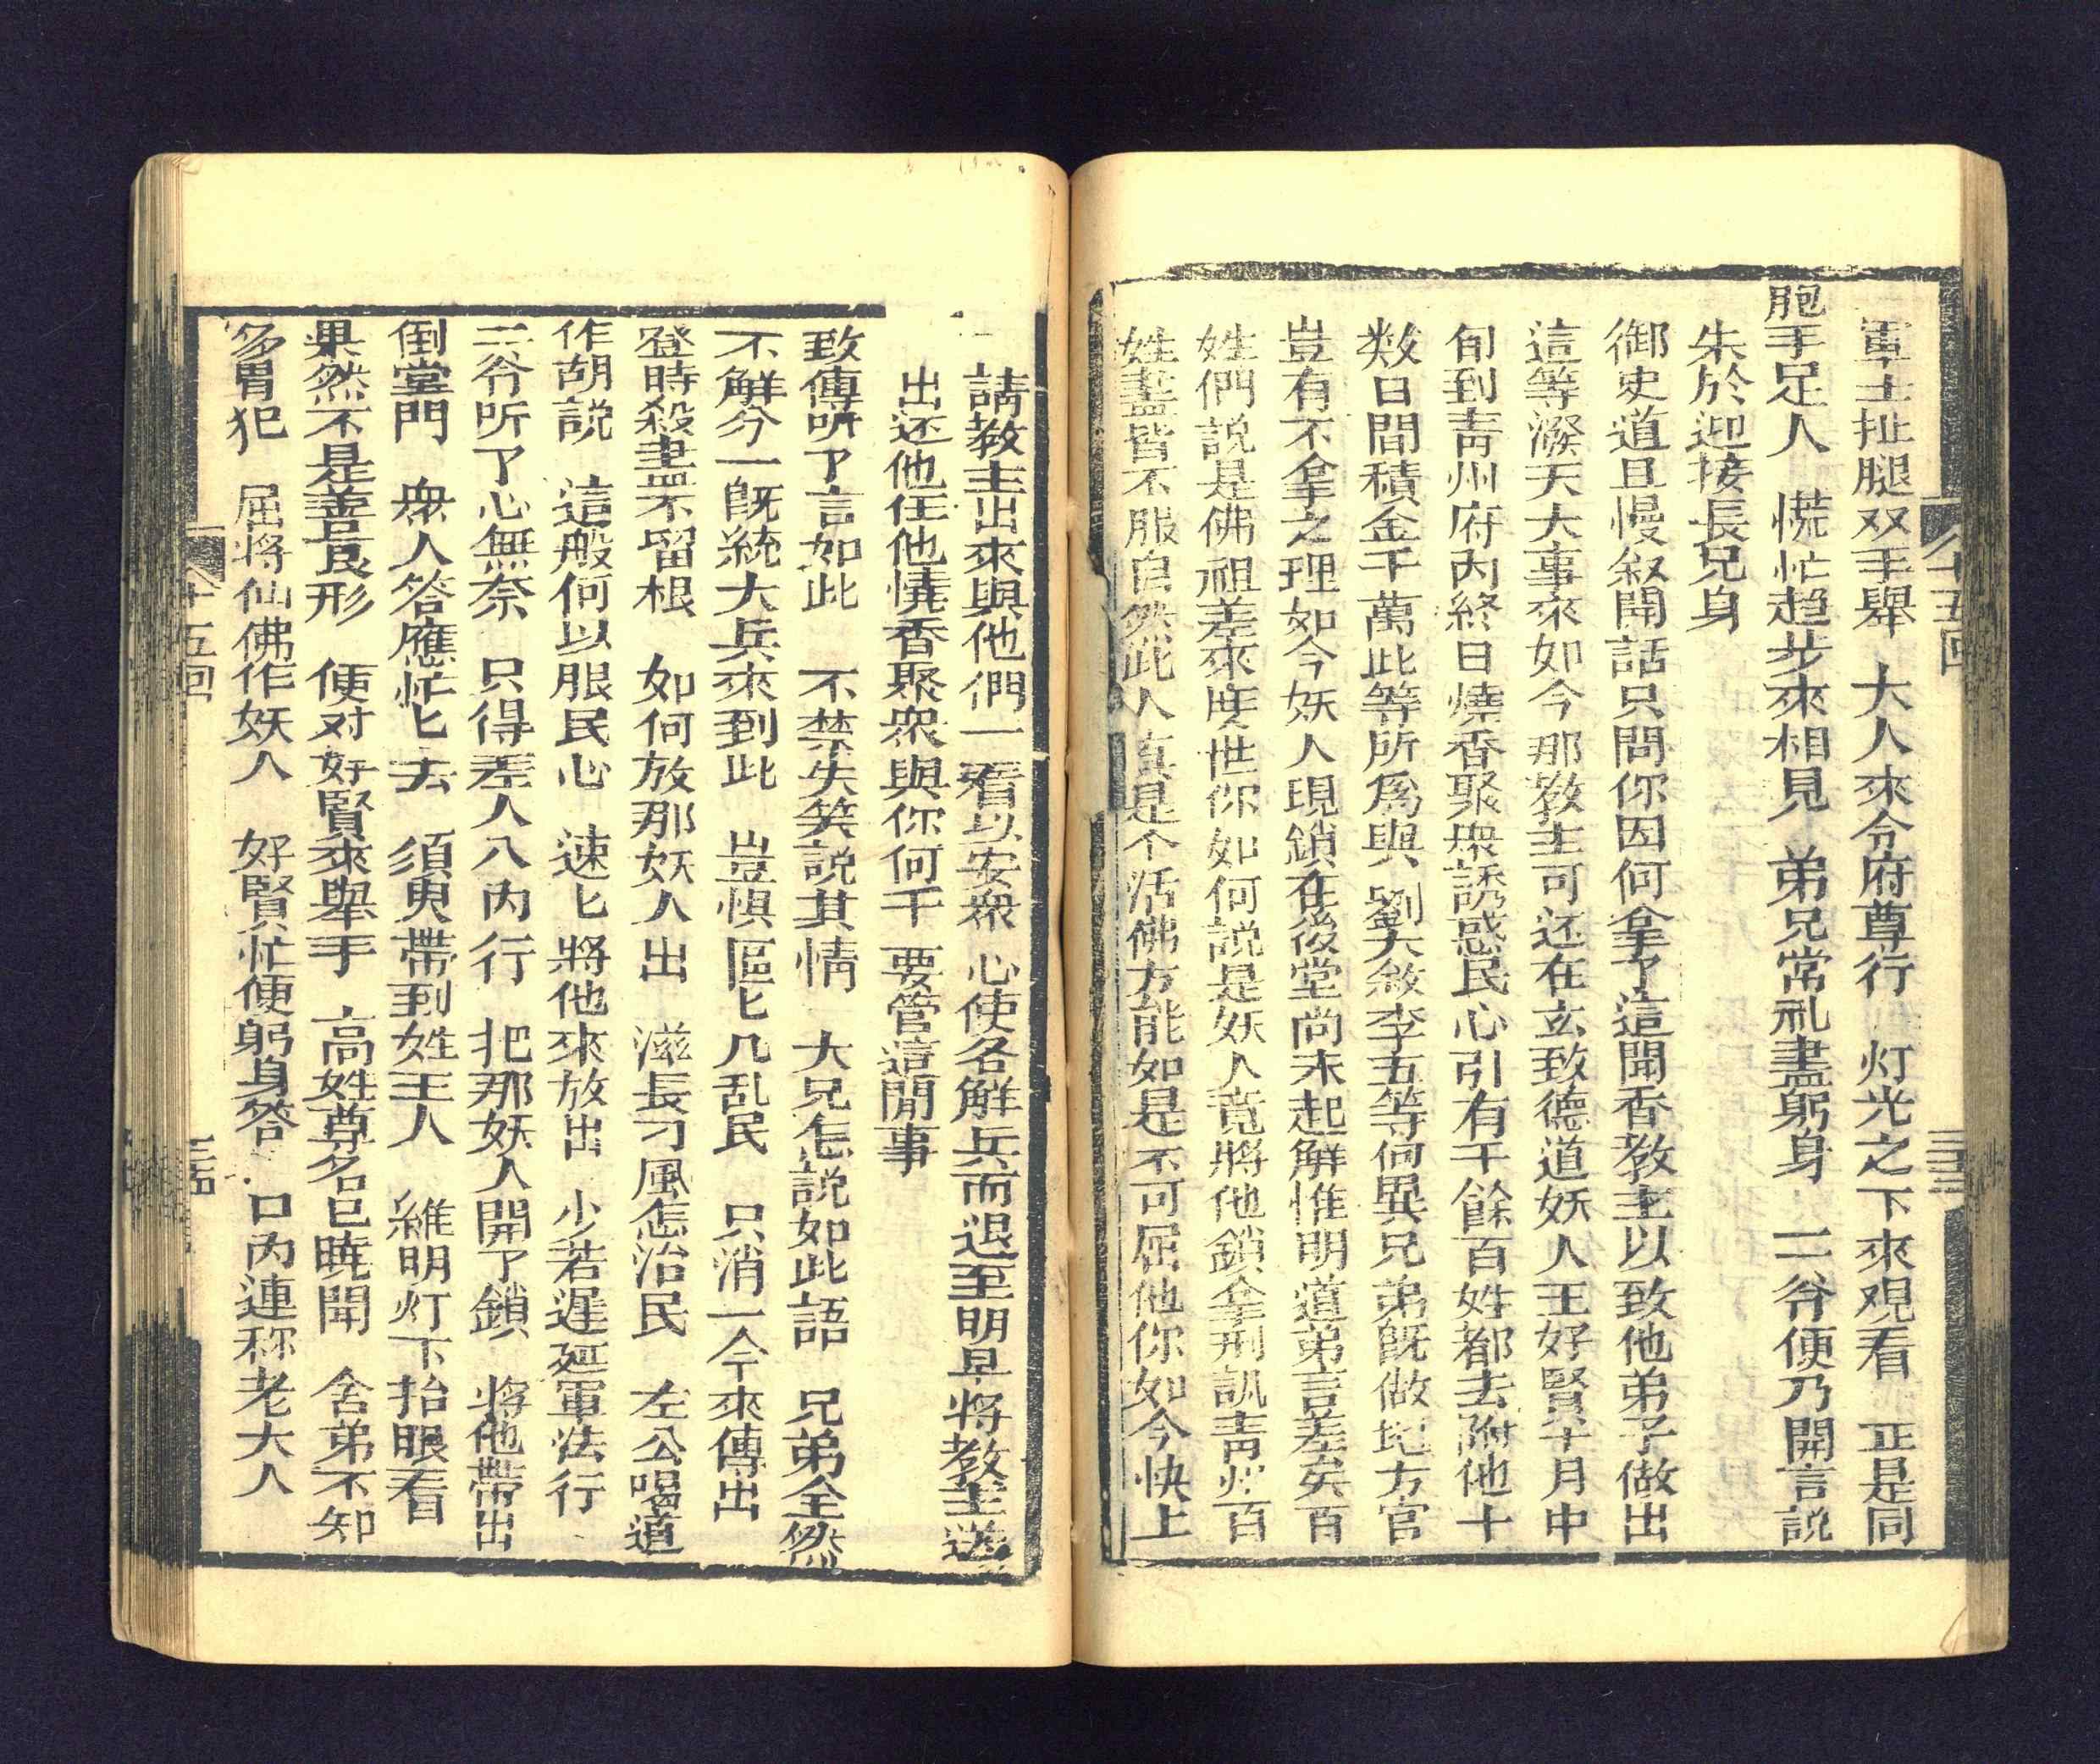 軍士扯腿双手舉　大人來令府尊行　灯光之下來观看　正是同
胞手足人　慌忙趋步來相見　弟兄常礼盡躬身　二爷便乃開言説
朱於迎接長兄身
御史道且慢叙閒話只問你因何拿了這聞香教主以致他弟子做出
這等潑天大事來如今那教主可还在玄致德道妖人王好賢半月中
旬到青州府内終日燒香聚衆誘惑民心引有千餘百姓都去附他十
数日間積金千萬此等所爲與劉六敘李五等何異兄弟既做地方官
豈有不拿之理如今妖人現鎖在後堂尚未起解惟明道弟言差矣百
姓們説是佛祖差來度世你如何説是妖人竟將他鎖拿刑訊青州百
姓盡皆不服自然此人真是个活佛方能如是不可屈他你如今快上
請教主出來與他們一看以安衆心使各解兵而退至明早將教主送
出还他任他燒香聚衆與你何干要管這閒事
致傳听了言如此　不禁失笑説其情　大兄怎説如此語　兄弟全然
不解分一既統大兵來到此　豈惧區匕几乱民　只消一令來傳出
登時殺盡不留根　如何放那妖人出　滋長刁風怎治民　左公喝道
作胡説　這般何以服民心　速匕將他來放出　少若遲延軍法行
二爷听了心無奈　只得差人入内行　把那妖人開了鎖　將他帶出
倒堂門　衆人答應忙匕去　須臾帶到姓王人　維明灯下抬眼看
果然不是善良形　便对好賢來舉手　高姓尊名已曉聞　舍弟不知
多冒犯　屈將仙佛作妖人　好賢忙便躬身答　口内連称老大人
十五回
十五回